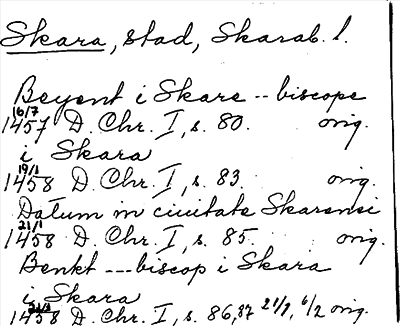 Skara, stad, Skarab. l.
Beyent i Skare -- biscope
16/7
1457 D. Chr. I, s. 80. orig.
i Skara
19/1
1458 D. Chr. I, s. 83. orig.
Datum in ciuitate Skarensi
21/1
1458 D. Chr. I, s. 85. orig.
Benkt --- biscop i Skara
i Skara
1458 D. Chr. I, s. 86,87 21/1, 6/2 orig.